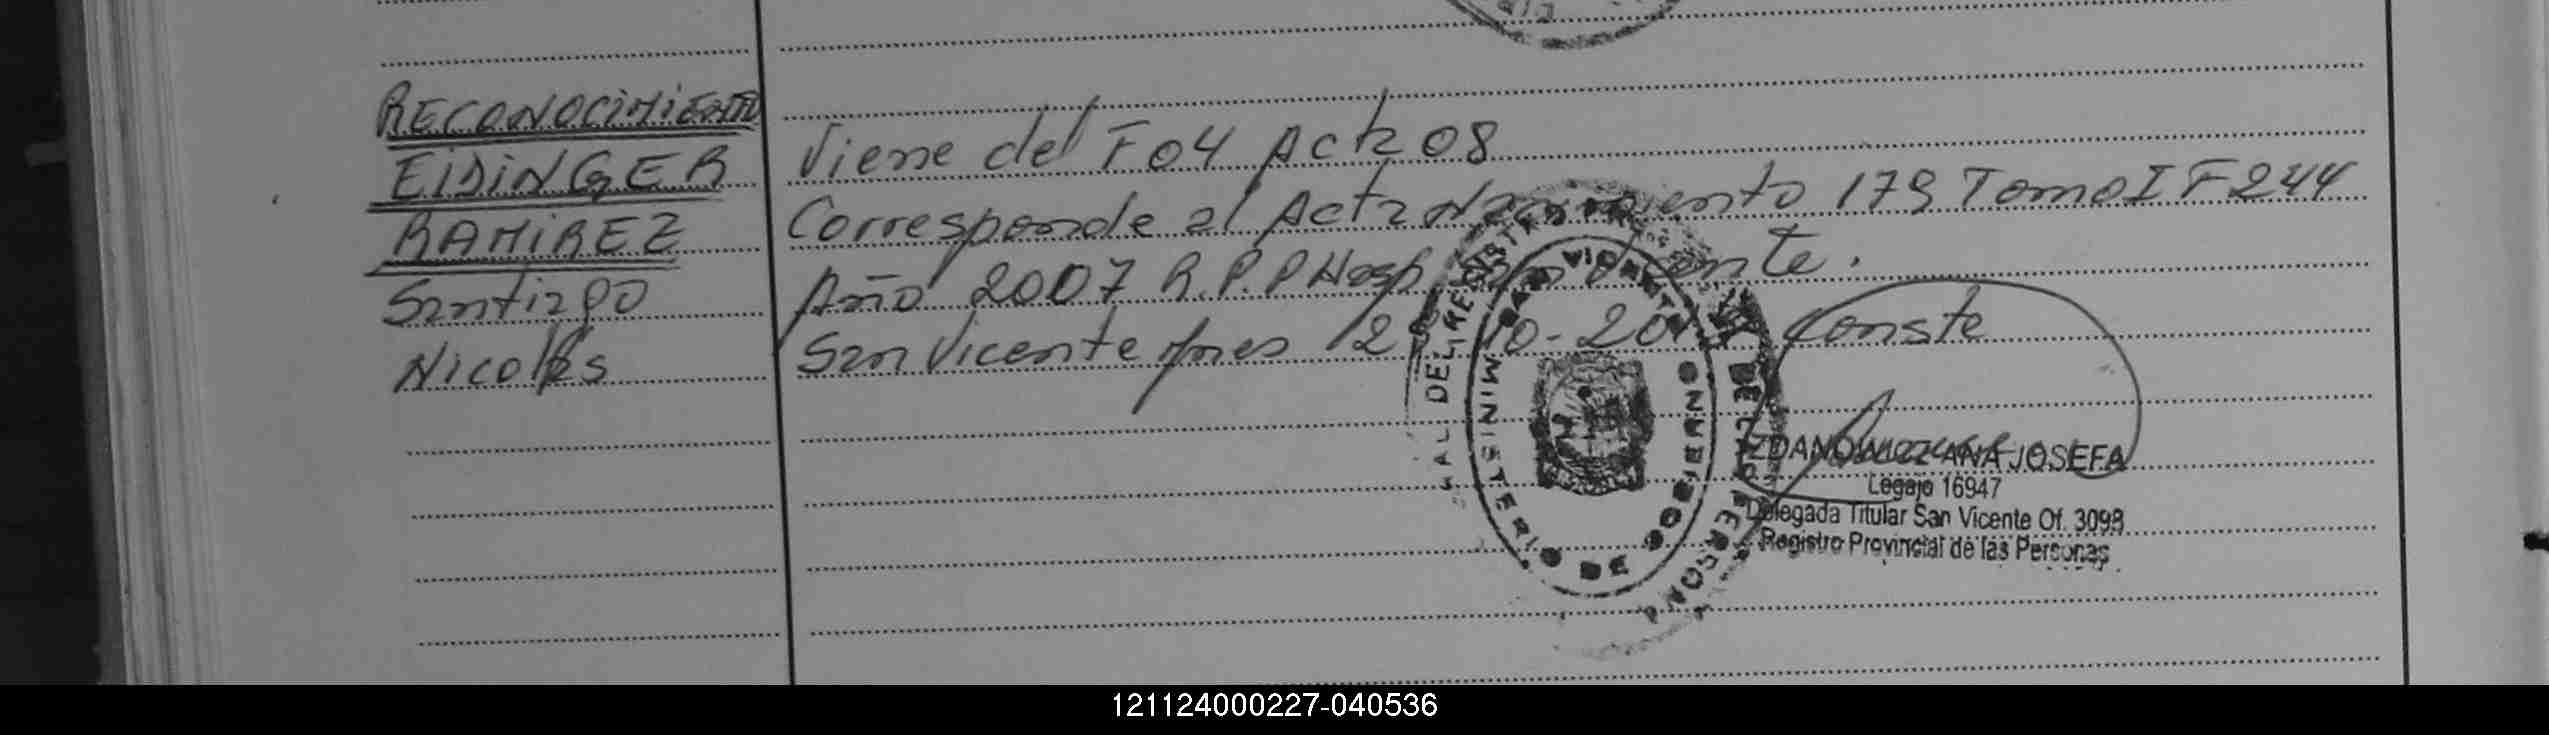 RECONOCIMIENTO
EIDINGER
RAMIREZ
Santiago
Nicolás
Viene del F04 Acta 08
Corresponde al Acta Nacimiento 179 Tomo I F 244
Año 2007 R.P.P Hosp San Vicente.
San Vicente Mnes 12 -10-20 Conste
MINISTERIO DE GOBIERNO
SAN VICENTE
ZDANOWICZ ANA JOSEFA
Legajo 16947
Delegada Titular San Vicente Of. 3098
Registro Provincial de las Personas
121124000227-040536